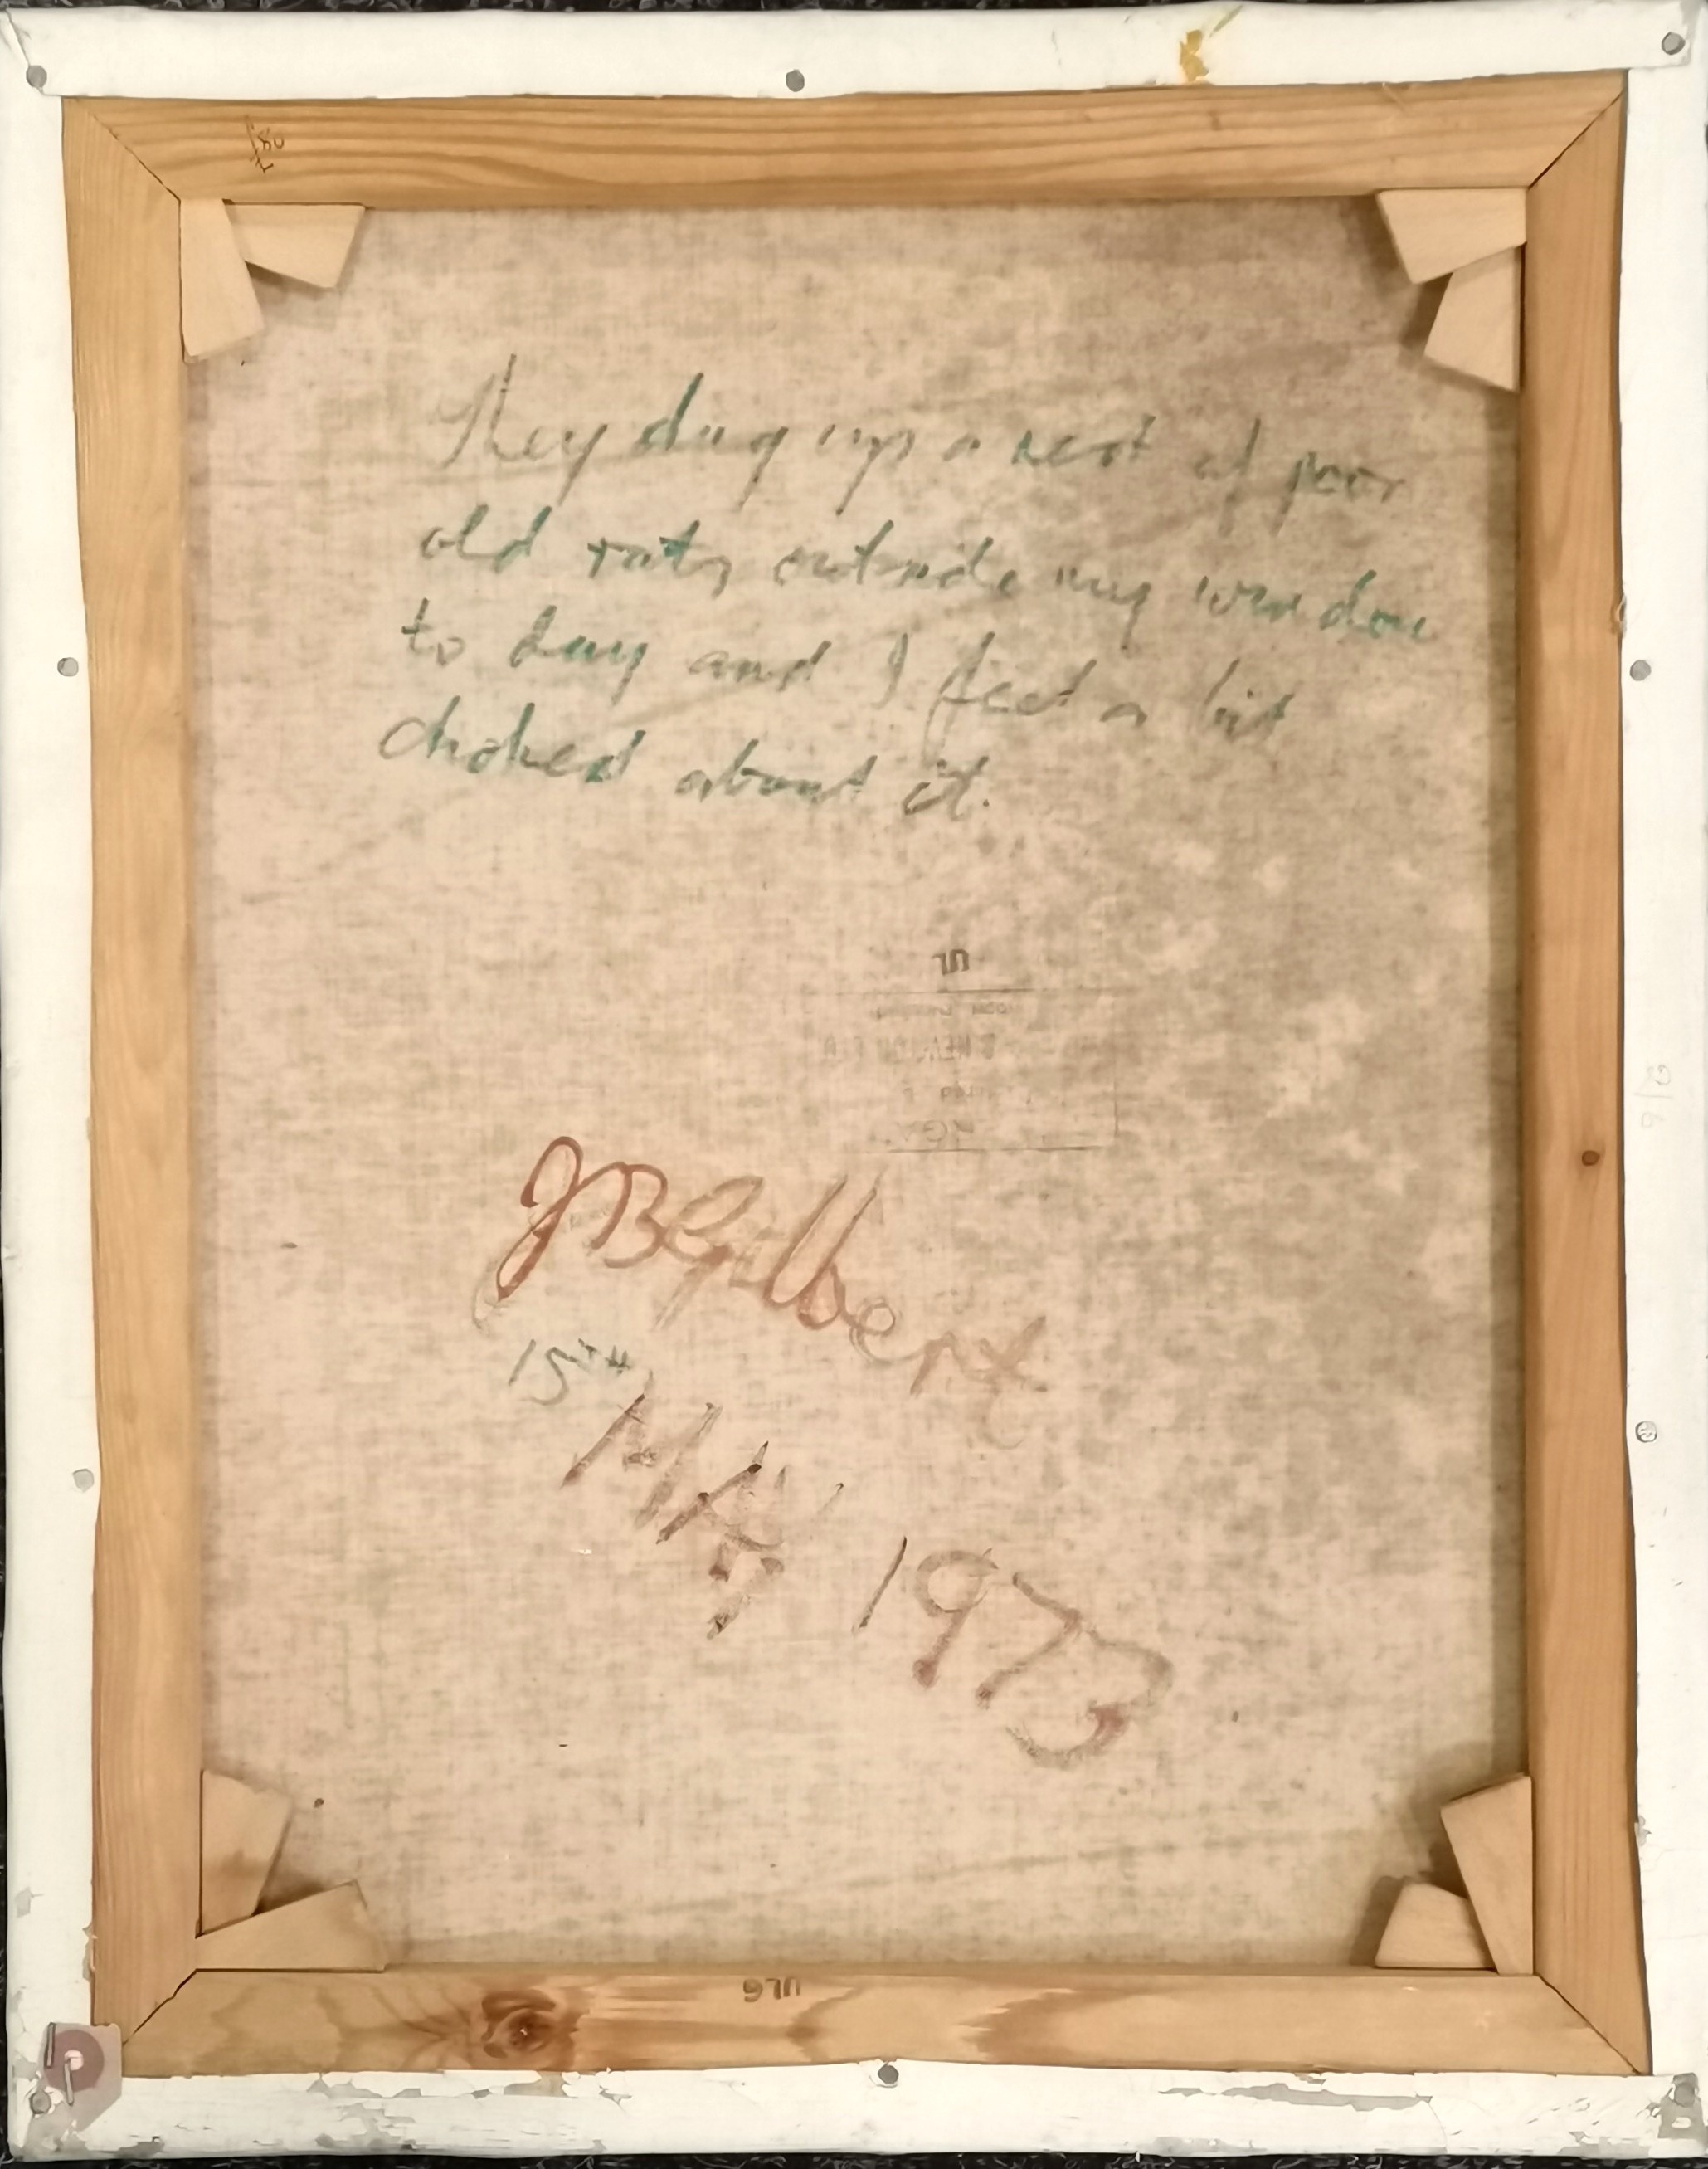 £80
They dug up a nest of poor
old rats outside my window
to day and I feel a bit
choked about it.
UL
NEWTON LTD
JB Gilbert
15TH
MAY 1973
UL6